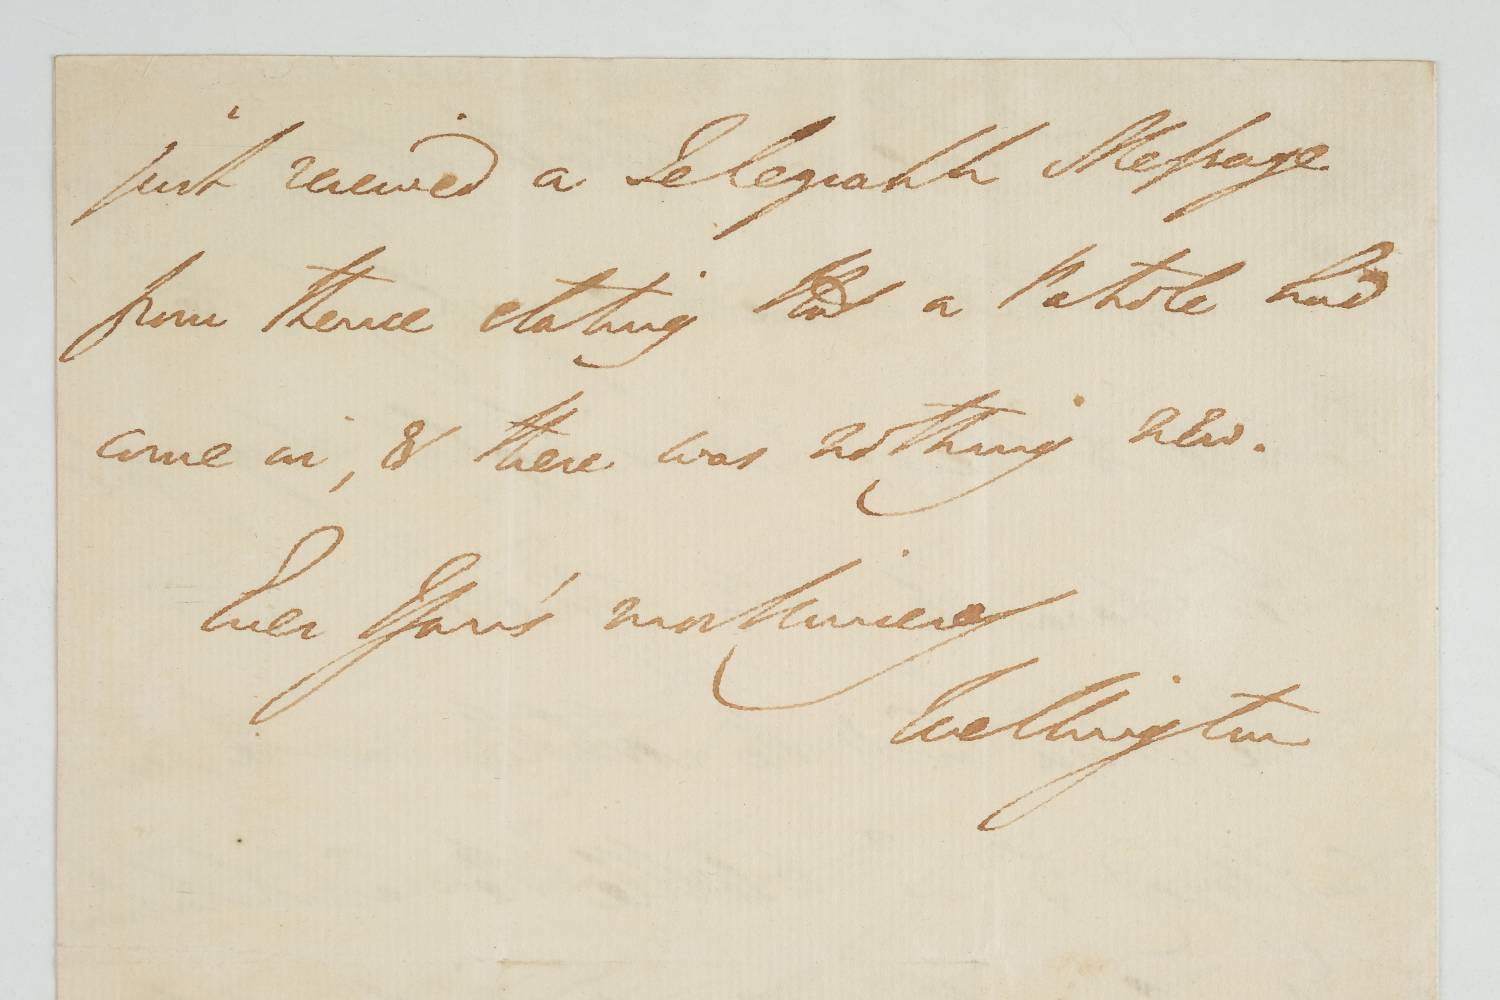 just received a Telegraph Message
from thence stating that a Patrole had
come in, & there was nothing new.
Ever Yours most sincerely
Wellington